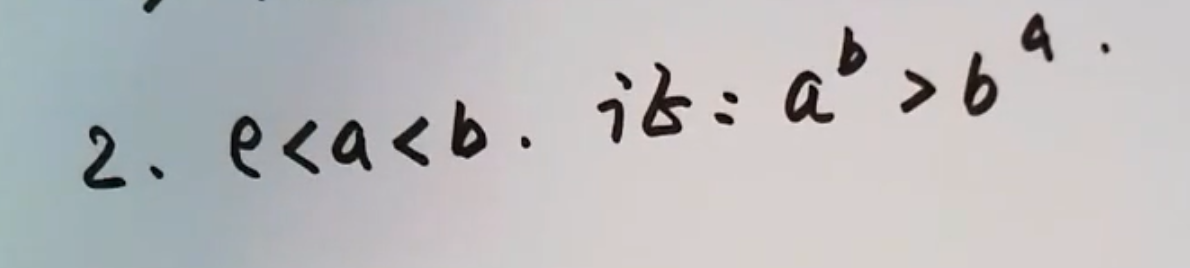 2. e<a<b. 证: a^b > b^a.